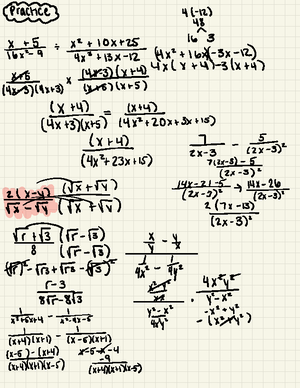 Practice
4(-12)
48
16 3
x + 5 / 16x² - 9 ÷ x² + 10x + 25 / 4x² + 13x - 12
(4x² + 16x)(-3x - 12)
4x(x + 4) - 3(x + 4)
x+5 / (4x-3)(4x+3) × (4x-3)(x+4) / (x+5)(x+5)
(x + 4) / (4x+3)(x+5) = (x+4) / (4x² + 20x + 3x + 15)
(x + 4) / (4x² + 23x + 15)
7 / 2x-3 - 5 / (2x-3)²
7(2x-3) - 5 / (2x-3)²
14x - 21 - 5 / (2x-3)² → 14x - 26 / (2x-3)²
2(7x - 13) / (2x-3)²
2(x-y) / √x - √y (√x + √y) / (√x + √y)
√r + √3 / 8 (√r - √3) / (√r - √3)
(√r)² - √3r + √3r - √3²
r - 3 / 8√r - 8√3
x/y - y/x
1/4x² - 1/4y²
x² - y² / xy
y² - x² / 4xy
4x²y² / y² - x²
-x² + y²
- (x² + y²)
1 / x² + 5x + 4 - 1 / x² - 4x - 5
1 / (x+4)(x+1) - 1 / (x-5)(x+1)
(x-5) - (x+4) / (x+4)(x+1)(x-5)
x - 5 - x - 4
-9 / (x+4)(x+1)(x-5)